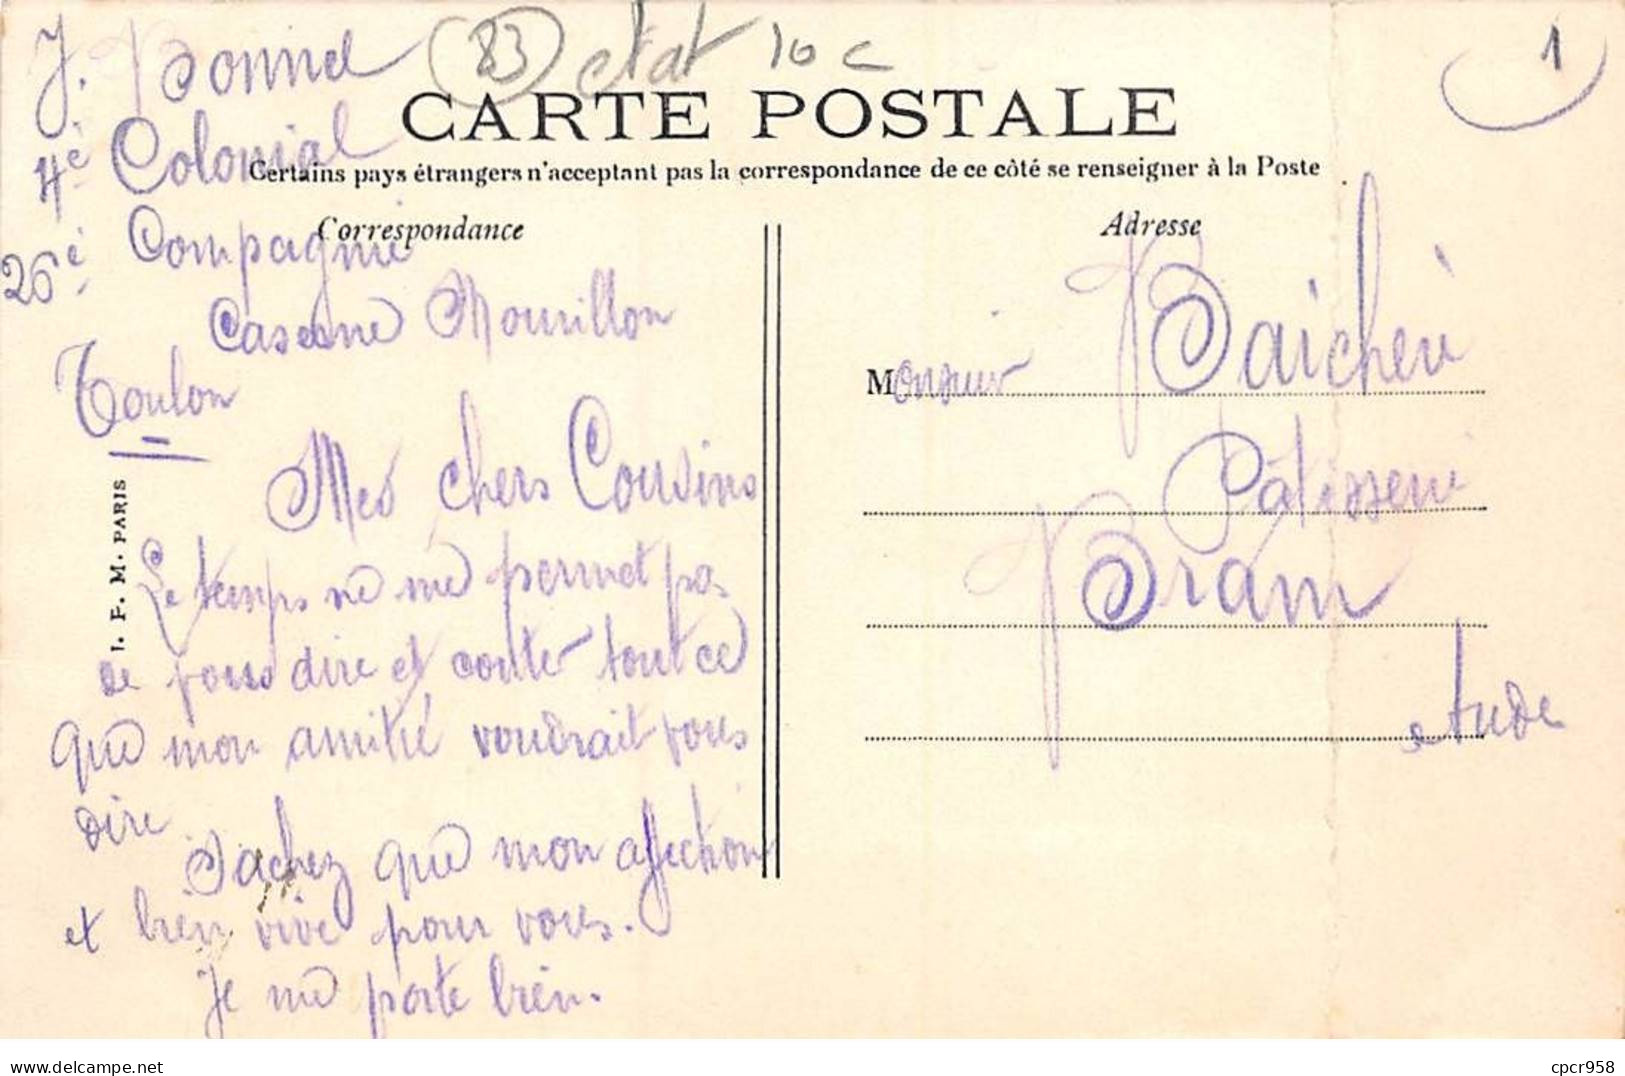 J. Bonnel
83
état 10 c
1
4è Colonial
CARTE POSTALE
Certains pays étrangers n'acceptent pas la correspondance de ce côté se renseigner à la Poste
26è Compagnie
Correspondance
Caserne Mourillon
Toulon
I. P. M. PARIS
Mes chers Cousins
Le temps ne me permet pas
de vous dire et conter tout ce
que mon amitié voudrait vous
dire
Sachez que mon affection
et bien vive pour vous.
Je me porte bien.
Adresse
Monsieur Baichère
Pâtisserie
Bram
Aude
delcampe.net
cpcr958